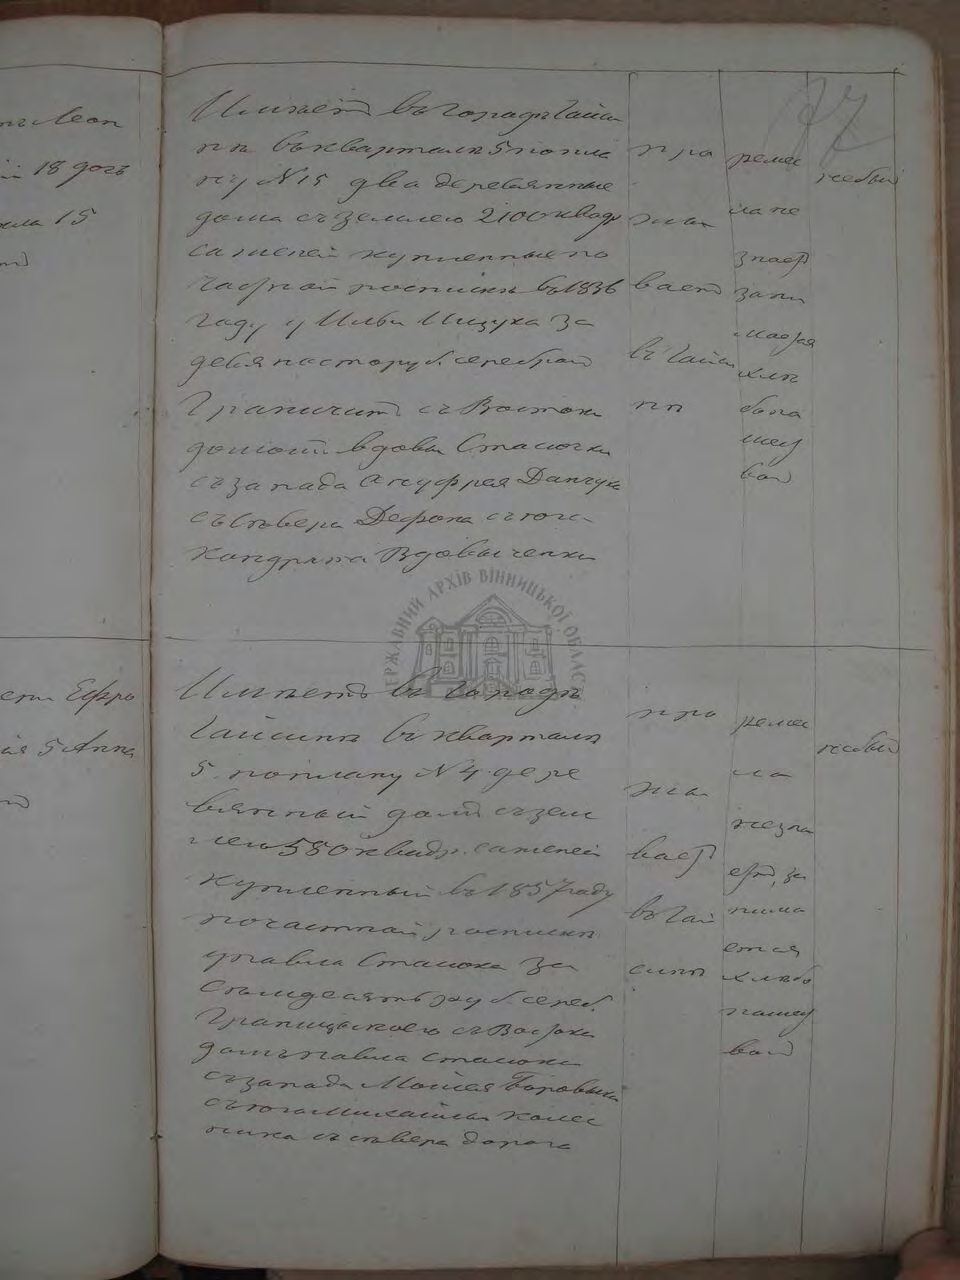 77
нъ Леон
18 дочь
15
Имѣетъ въ городѣ Гайси
нѣ въ кварталѣ 5 по пла
ну N 15 два деревянные
дома съ землею 2100 квадр
саженей купленные по
частной росписки въ 1836
году у Ильи Ищука за
девяносто руб. серебромъ
Граничитъ съ Востока
домомъ вдовы Стасючки
съ запада Ануфрея Данчука
съ Сѣвера съ юга
Кондрата Вдовыченка
про
жи
ваетъ
въ Гайси
нѣ
ремес
ла не
знаетъ
зани
мается
хлѣ
бопа
шес
вом
особый
ДЕРЖАВНИЙ АРХІВ ВІННИЦЬКОЇ ОБЛАСТІ
Ефро
5 Анна
Имѣетъ въ Городѣ
Гайсинѣ въ кварталѣ
5. по плану N 4 дере
вянный домъ съ зем
лею 580 квадр. саженей
купленный въ 1857 году
по частной росписки
у Павла Стасюка за
семдесятъ руб. сереб.
Граничущаго съ Востока
домъ Павла Стасюка
съ запада Мойсея Боровыка
съ юга Михайла Колес
ника съ сѣвера дорога
про
жи
ваетъ
въ Гай
синѣ
ремес
ла
незна
етъ, за
нима
ется
хлѣбо
пашес
вом
особый